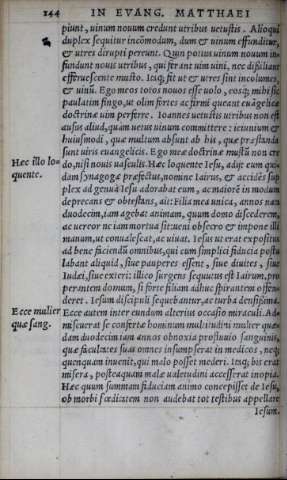 244 IN EVANG. MATTHAEI
piunt, uinum nouum credunt utribus uetustis. Alioqui
duplex sequitur incōmodum, dum & uinum effunditur,
& utres dirupti pereunt. Quin potius uinum nouum in
fundunt nouis utribus, qui ferant uim uini, nec dissiliant
efferuescente musto. Itaq; sit ut & utres sint incolumes,
& uinū. Ego meos toros nouos esse uolo, eosq; mihi sic
paulatim fingo, ut olim fortes ac firmi queant euāgelicæ
doctrinæ uim perferre. Ioannes uetustis utribus non est
ausus aliud, quam uetus uinum committere: ieiunium &
huiusmodi, quæ multum absunt ab his, quæ præstanda
sunt uiris euangelicis. Ego meæ doctrinæ mustū non cre
Hæc illo lo do, nisi nouis uasculis. Hæc loquente Iesu, adijt eum qui-
quente. dam synagogæ præfectus, nomine Iairus, & accidēs sup
plex ad genua Iesu adorabat eum, ac maiorē in modum
deprecans & obtestans, ait: Filia mea unica, annos nata
duodecim, iam agebat animam, quum domo discederem,
ac uereor ne iam mortua sit: ueni obsecro et impone illi
manum, ut conualescat, ac uiuat. Iesus ut erat expositus
ad bene faciendū omnibus, qui cum simplici fiducia postu
labant aliquid, siue pauperes essent, siue diuites, siue
Iudæi, siue exteri: illico surgens sequutus est Iairum, pro
perantem domum, si forte filiam adhuc spirantem offēn
deret. Iesum discipuli sequebantur, ac turba densissima.
Ecce mulier Ecce autem inter eundum alterius occasio miraculi. Ad-
quæ sang. miscuerat se confertæ hominum multitudini mulier quæ-
dam duodecim iam annos obnoxia profluuio sanguinis,
quæ facultates suas omnes insumpserat in medicos, neq;
quenquam inuenit, qui malo posset mederi. Itaq; bis erat
misera, posteaquam malæ ualetudini accesserat inopia.
Hæc quum summam fiduciam animo concepisset de Iesu,
ob morbi fœditatem non audebat tot testibus appellare
Iesum.